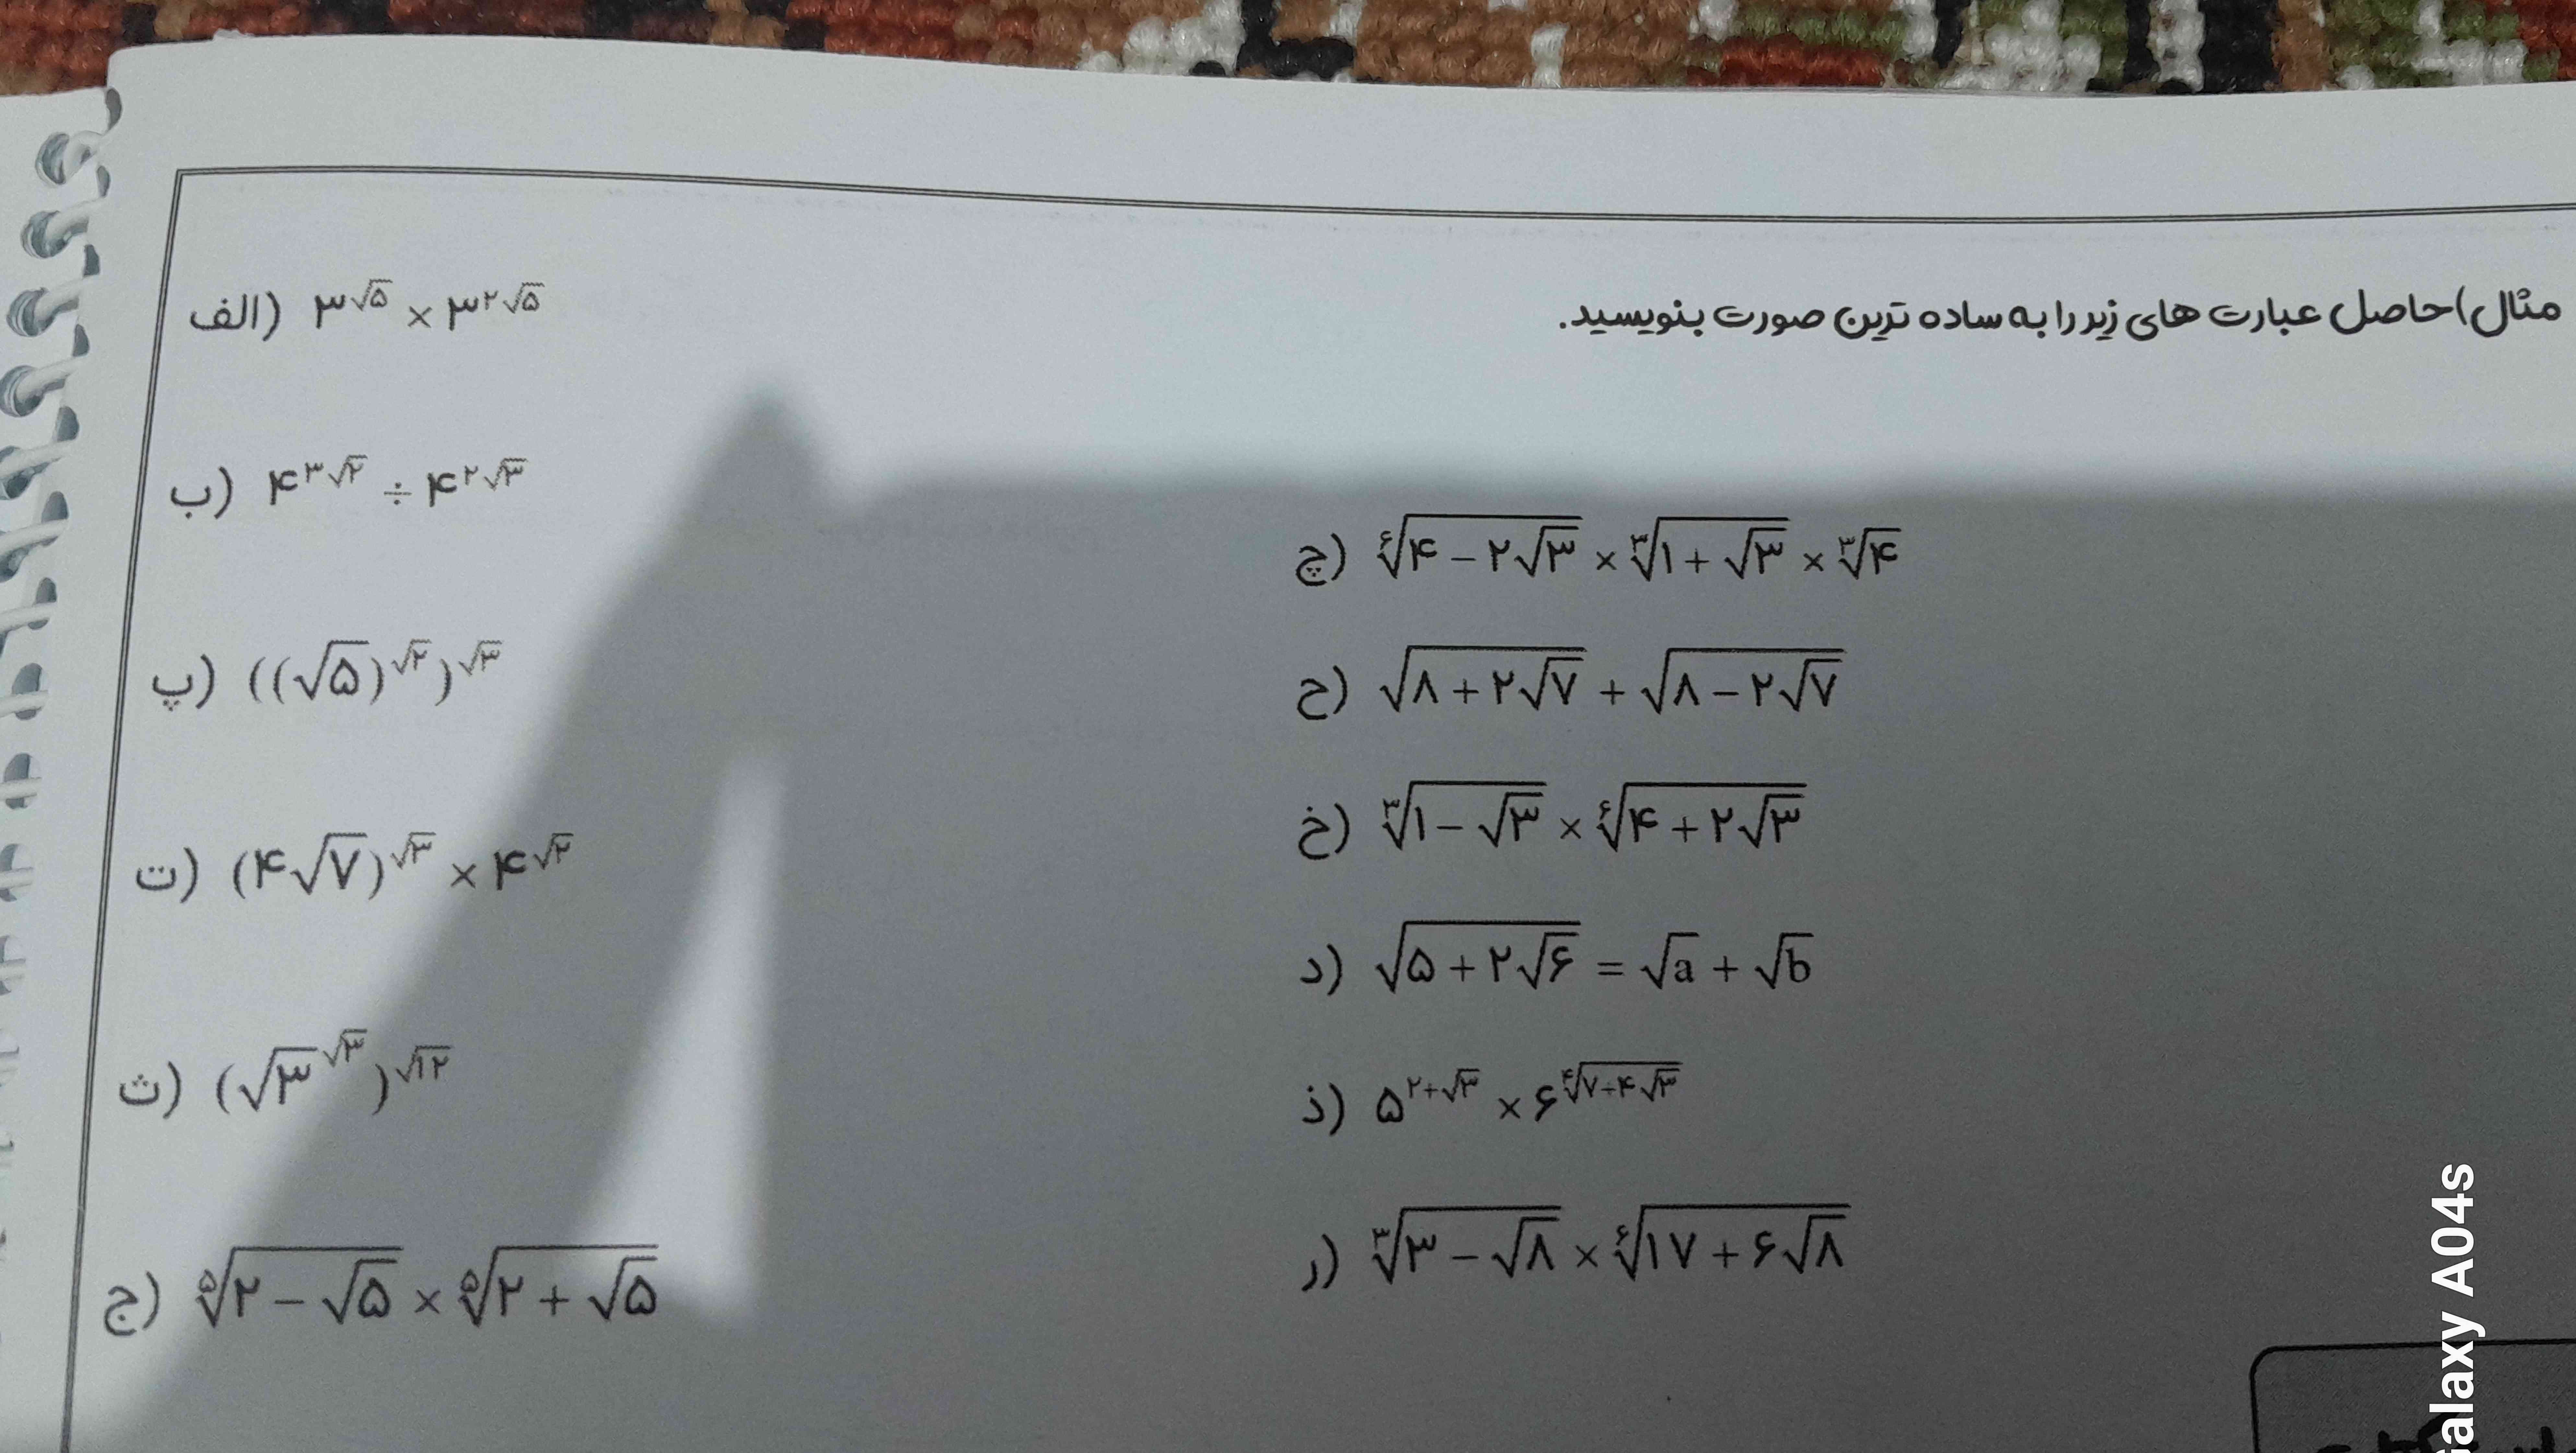 مثال)حاصل عبارت های زیر را به ساده ترین صورت بنویسید.
الف) ۳^√۵ × ۳^۲√۵
ب) ۴^۳√۲ ÷ ۴^۲√۳
پ) ((√۵)^√۲)^√۳
ت) (۴√۷)^√۳ × ۴^√۲
ث) (√۳^√۳)^√۱۲
ج) ⁵√(۲ − √۵) × ⁵√(۲ + √۵)
چ) ⁶√(۴ − ۲√۳) × ³√(۱ + √۳) × ³√۴
ح) √(۸ + ۲√۷) + √(۸ − ۲√۷)
خ) ³√(۱ − √۳) × ⁶√(۴ + ۲√۳)
د) √(۵ + ۲√۶) = √a + √b
ذ) ۵^(۲+√۳) × ۶^⁴√(۷+۴√۳)
ر) ³√(۳ − √۸) × ⁶√(۱۷ + ۶√۸)
Galaxy A04s